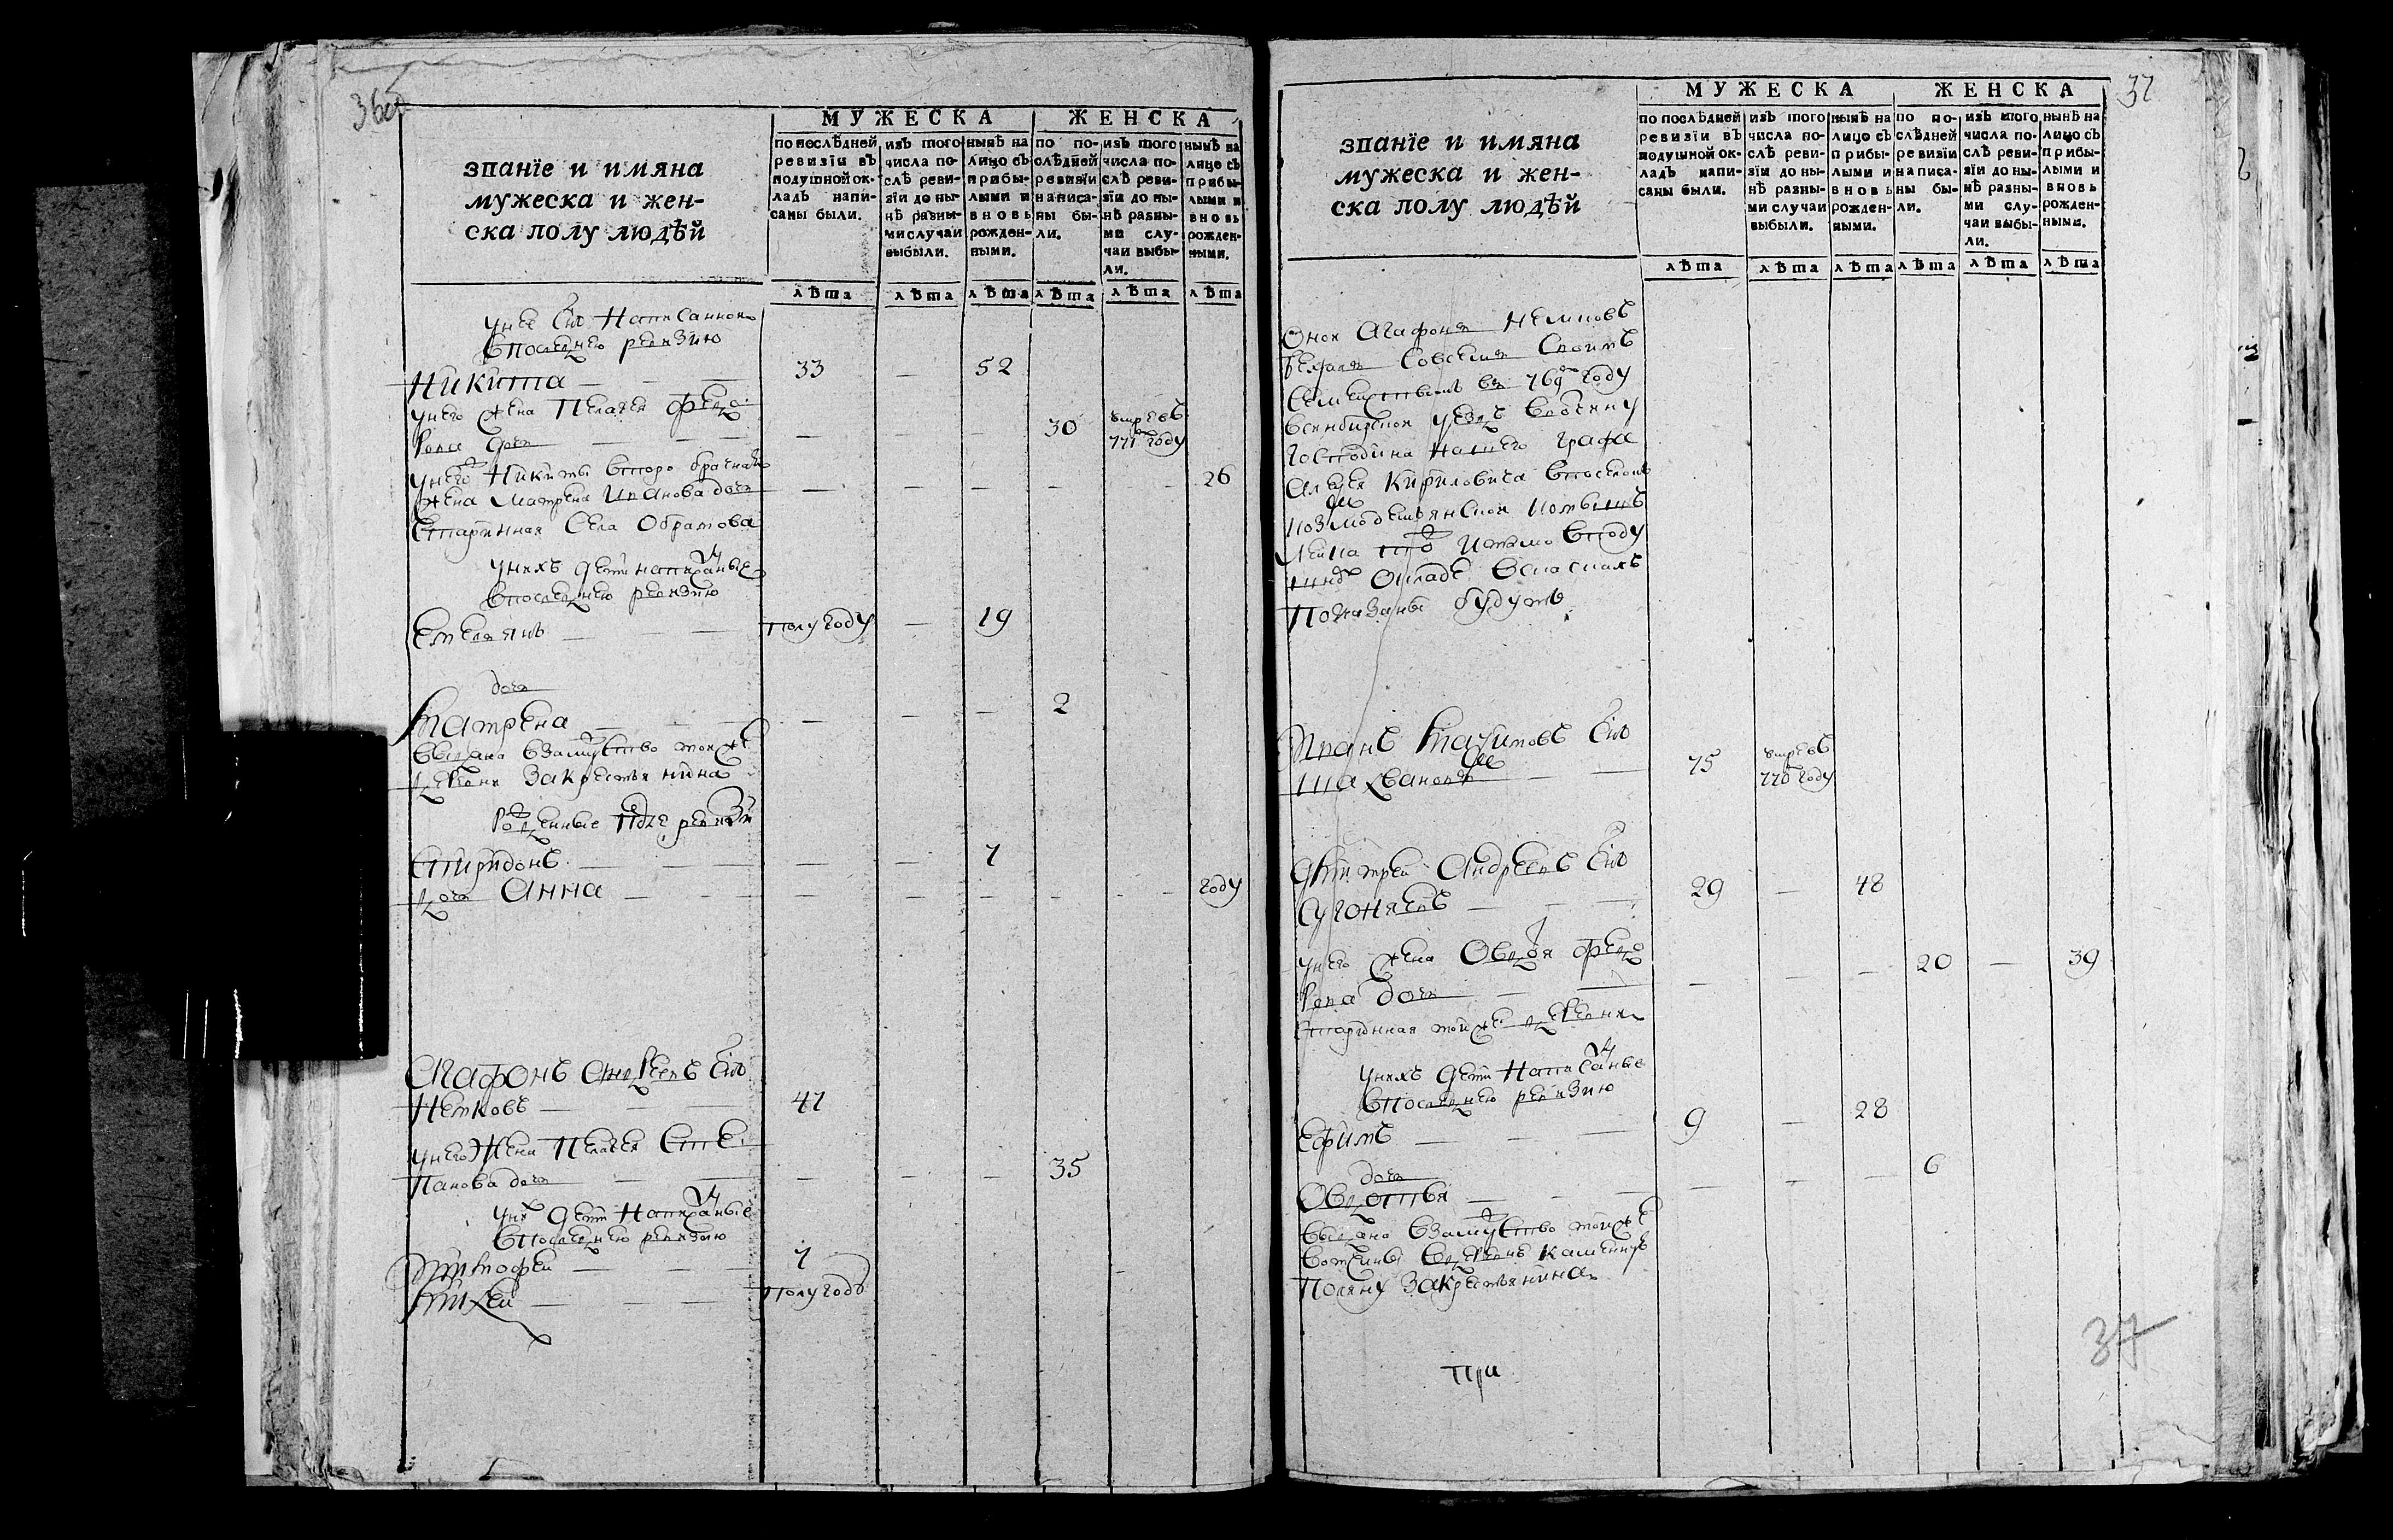 36об
званїе и имяна
мужеска и жен-
ска полу людѣй
МУЖЕСКА
ЖЕНСКА
по послѣдней ревизїи въ подушной окладъ написаны были.
изъ того числа послѣ ревизїи до нынѣ разными случаи выбыли.
нынѣ на лицо съ прибылыми и вновь рожденными.
по послѣдней ревизїи написаны были.
изъ того числа послѣ ревизїи до нынѣ разными случаи выбыли.
нынѣ на лицо съ прибылыми и вновь рожденными.
лѣта лѣта лѣта лѣта лѣта лѣта
у нея сынъ написанной
в последнею ревизию
Никита — 33 — 52
у него жена Пелагея Федо
рова дочь — — — 30 умре въ 771 году
у него Никиты второ брачная
жена Матрена Иванова дочь — — — — — 26
старинная села Обратова
у нихъ дети написаныя
в последнею ревизию
Емельянъ — полугоду — 19
дочь
Матрена — — — 2
выдана взамужство той же
деревни за крестьянина
рожденные после ревизи
Спиридонъ — — 7
дочь Анна — — — — — году
Агафонъ Андреевъ сынъ
Немковъ — 47
у него жена Пелагея Сте
панова дочь — — — 35
у них дети написаныя
в последнею ревизию
Тимофей — 7
Михей — полугоду
37
званїе и имяна
мужеска и жен-
ска полу людѣй
МУЖЕСКА
ЖЕНСКА
по послѣдней ревизїи въ подушной окладъ написаны были.
изъ того числа послѣ ревизїи до нынѣ разными случаи выбыли.
нынѣ на лицо съ прибылыми и вновь рожденными.
по послѣдней ревизїи написаны были.
изъ того числа послѣ ревизїи до нынѣ разными случаи выбыли.
нынѣ на лицо съ прибылыми и вновь рожденными.
лѣта лѣта лѣта лѣта лѣта лѣта
Оной Агафонъ Немковъ
совсемъ своимъ
семействомъ въ 769м году
в Синбирской уездъ в вотчину
господина нашего графа
Кириловича
показаны будутъ
Иванъ сынъ
75 умре въ 770 году
Дмитрей Андреевъ сынъ
Сугоняевъ — 29 — 48
у него жена Овдотя Федо
рова дочь — — — 20 — 39
старинная той же деревни
у нихъ дети написаные
в последнею ревизию
Ефимъ — 9 — 28
дочь
Овдотья — — — 6
выдана взамужство той же
вотчины в деревню Каменную
Поляну за крестьянина
при
37